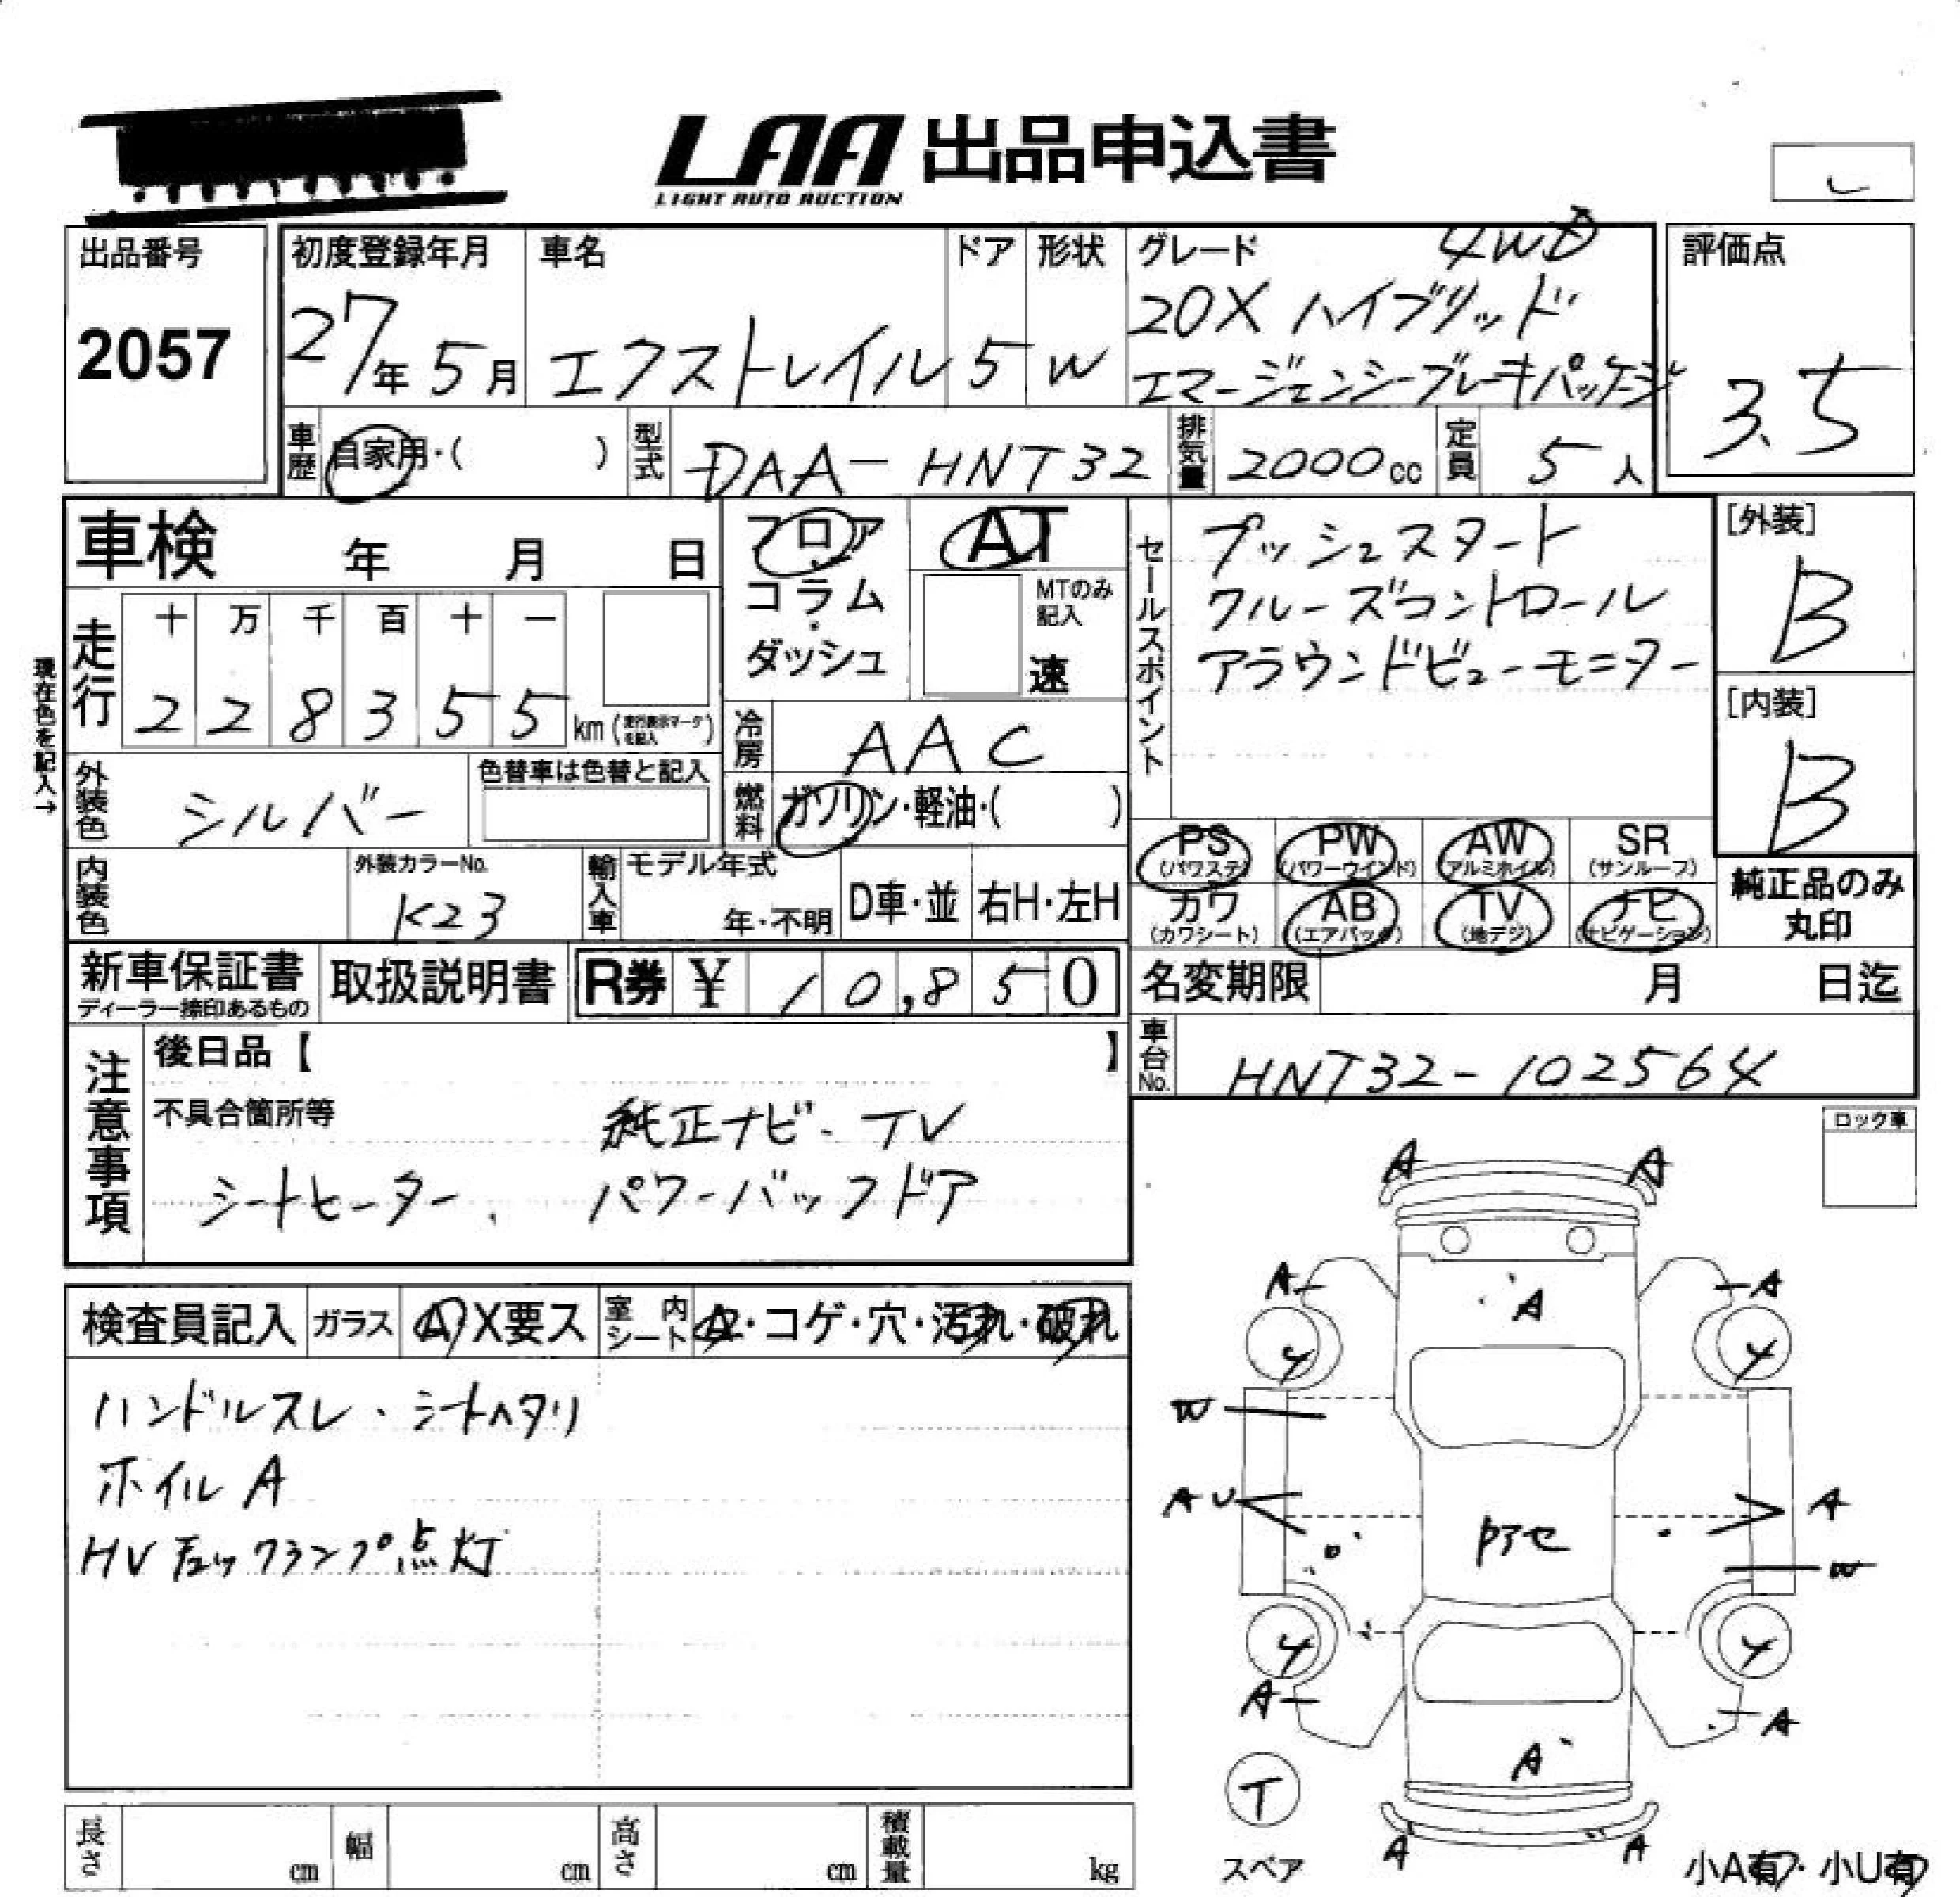 LAA 出品申込書
LIGHT AUTO AUCTION
出品番号
2057
初度登録年月
27年 5月
車名
エクストレイル
ドア
5
形状
W
グレード 4WD
20X ハイブリッド
エマージェンシーブレーキパッケージ
評価点
3.5
車歴 自家用・( )
型式 DAA-HNT32
排気量 2000cc
定員 5人
車検 年 月 日
フロア
コラム
ダッシュ
AT
MTのみ記入
速
セールスポイント
プッシュスタート
クルーズコントロール
アラウンドビューモニター
[外装]
B
[内装]
B
現在色を記入→
走行
十 万 千 百 十 一
2 2 8 3 5 5 km (走行表示マークを記入)
冷房 AAC
外装色 シルバー
色替車は色替と記入
燃料 ガソリン・軽油・( )
内装色
外装カラーNo.
K23
輸入車
モデル年式
年・不明
D車・並
右H・左H
PS (パワステ)
PW (パワーウインド)
AW (アルミホイル)
SR (サンルーフ)
カワ (カワシート)
AB (エアバック)
TV (地デジ)
ナビ (ナビゲーション)
純正品のみ
丸印
新車保証書
ディーラー捺印あるもの
取扱説明書
R券 ¥ 10,850
名変期限 月 日迄
車台No. HNT32-102564
注意事項
後日品【 】
不具合箇所等
純正ナビ・TV
シートヒーター、 パワーバックドア
ロック車
検査員記入
ガラス A X要ス
室内シート ・コゲ・穴・汚れ・破れ
ハンドルスレ・シートヘタリ
ホイルA
HVチェックランプ点灯
A A
A A
A
4 4
W
AU A
Pアセ
W
4 4
A A
A
T
スペア
A A
小A有・小U有
長さ cm
幅 cm
高さ cm
積載量 kg